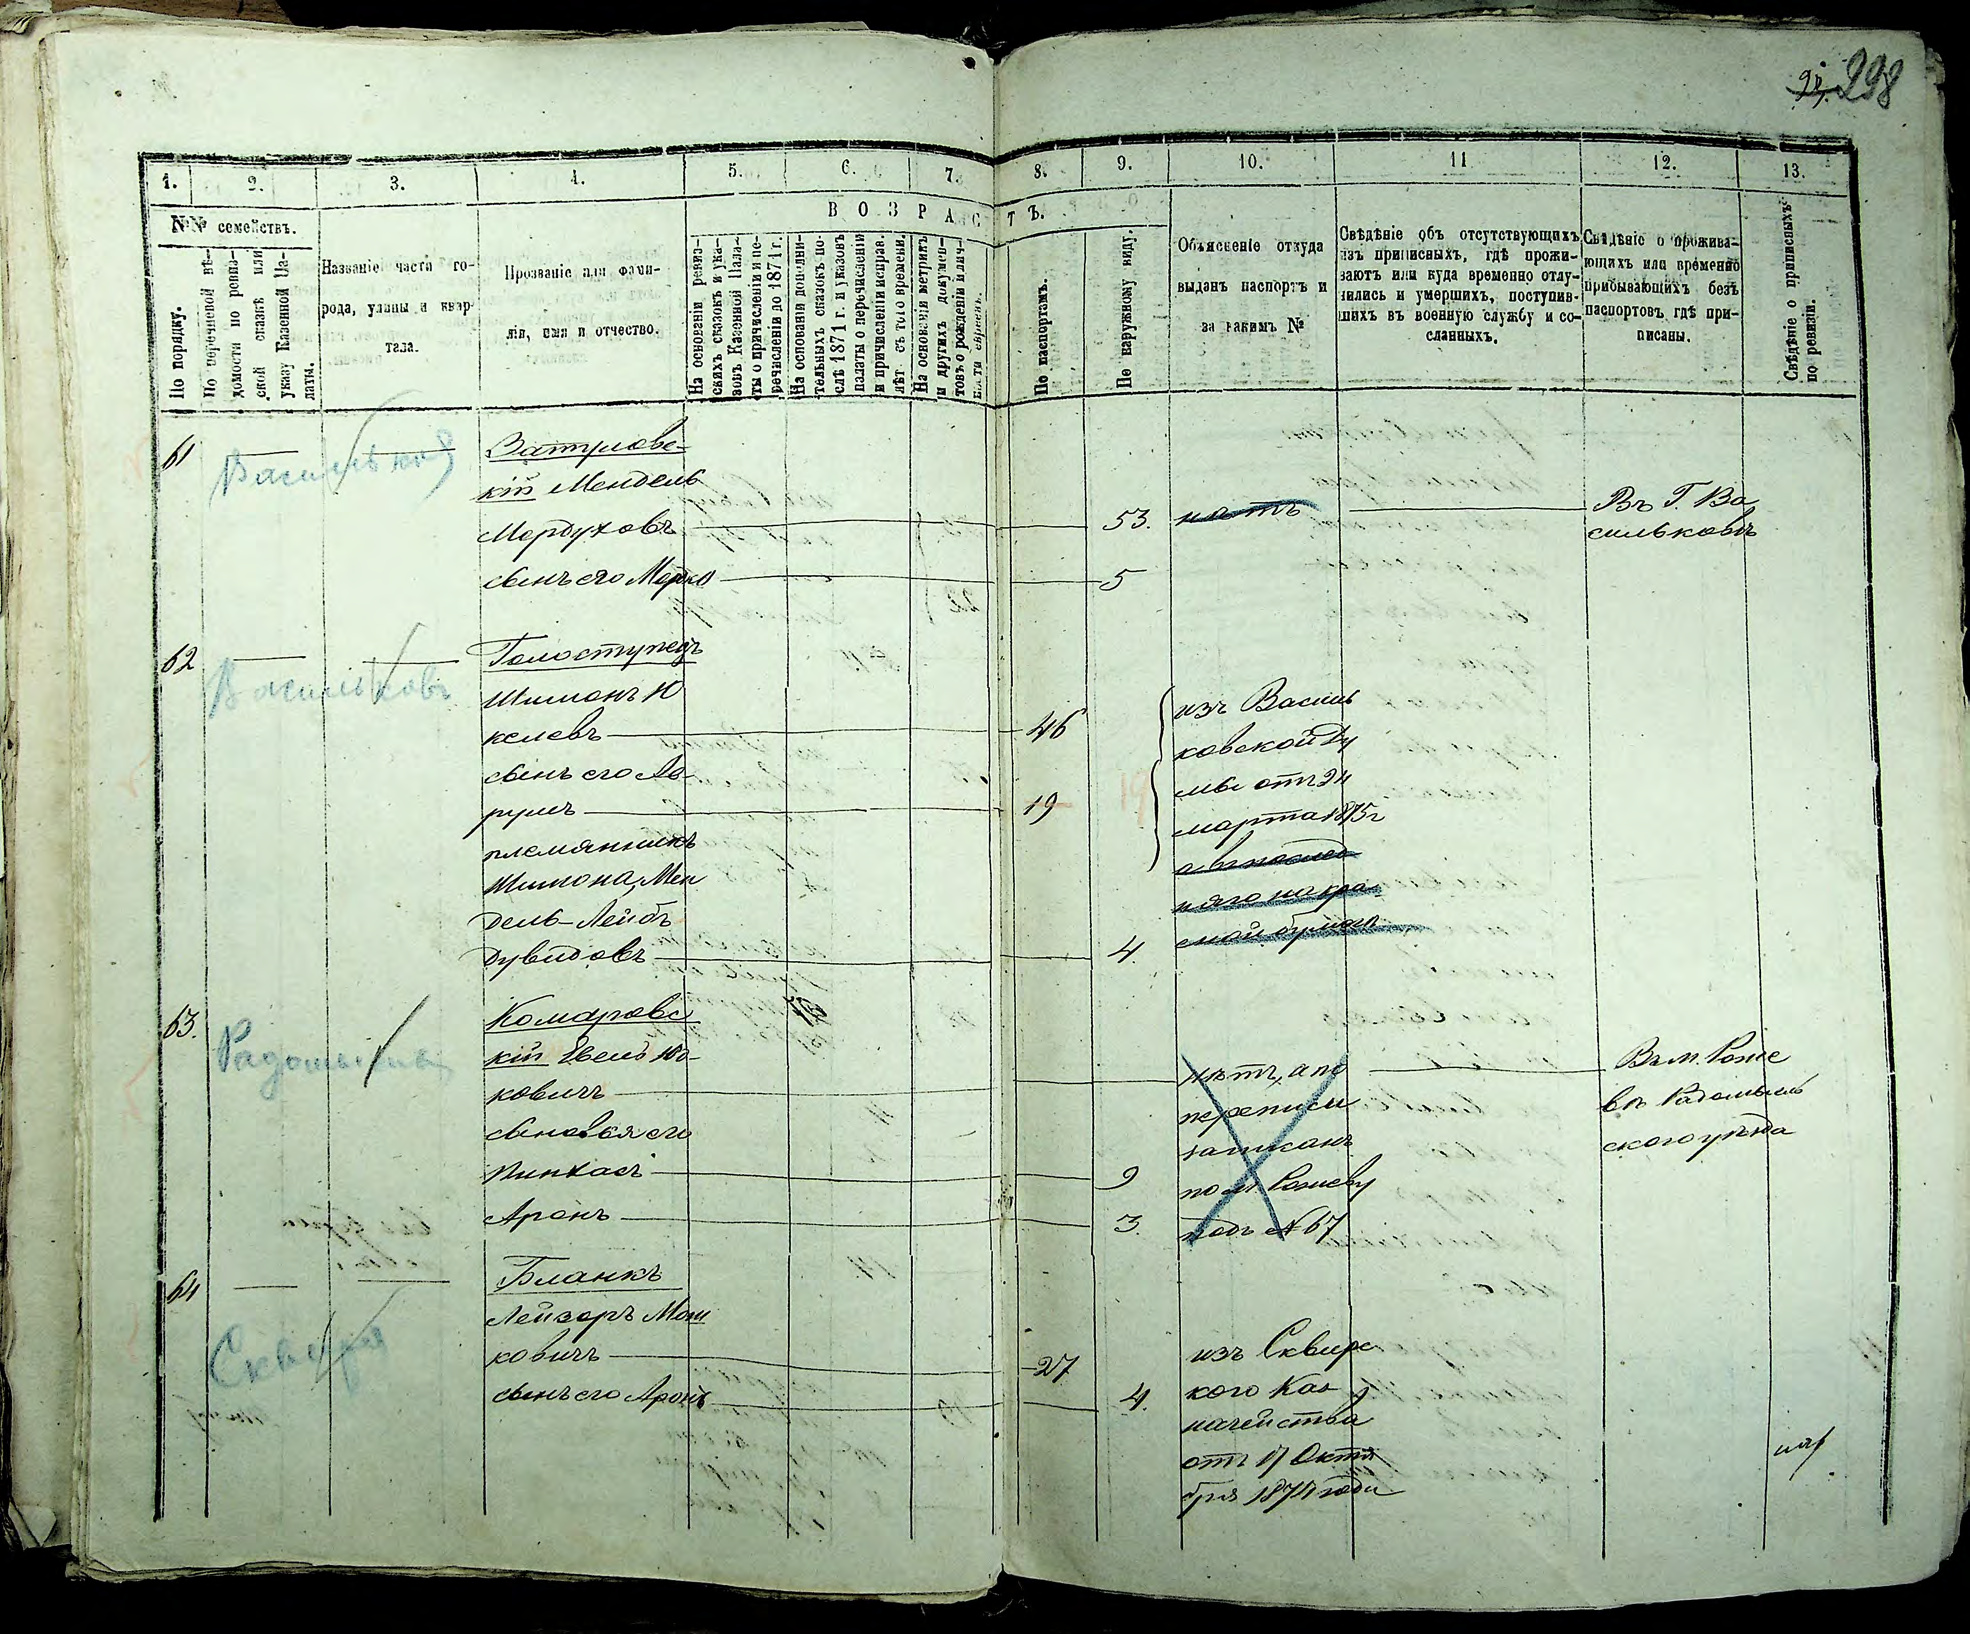 92. 298
1. 2. 3. 4. 5. 6. 7. 8. 9. 10. 11 12. 13.
№№ семействъ.
В О З Р А С Т Ъ.
По порядку.
По перечневой вѣ-
домости по ревиз-
ской сказкѣ или
указу Казенной Па-
латы.
Названіе части го-
рода, улицы и квар-
тала.
Прозваніе или фами-
лія, имя и отчество.
На основаніи ревиз-
скихъ сказокъ и ука-
зовъ Казенной Пала-
ты о причисленіи и пе-
речисленіи до 1871 г.
На основаніи дополни-
тельныхъ сказокъ по-
слѣ 1871 г. и указовъ
палаты о перечисленіи
и причисленіи исправ.
лѣт съ того времени.
На основаніи метрикъ
и другихъ докумен-
товъ о рожденіи и лич-
ности евреевъ.
По паспортамъ.
По наружному виду.
Объясненіе откуда
выданъ паспортъ и
за какимъ №
Свѣдѣніе объ отсутствующихъ
изъ приписныхъ, гдѣ прожи-
ваютъ или куда временно отлу-
чились и умершихъ, поступив-
шихъ въ военную службу и со-
сланныхъ.
Свѣдѣніе о прожива-
ющихъ или временно
прибывающихъ безъ
паспортовъ, гдѣ при-
писаны.
Свѣдѣніе о приписныхъ
по ревизіи.
61
Васильков
Затуловс-
кій Мендель
Мордуховъ 53. нѣтъ Въ Г. Ва
сильковѣ
сынъ его Мордко 5
62
Васильковъ
Голоступецъ
Шимонъ Ю
келевъ 46
сынъ его Ав-
румъ 19 19
племянникъ
Шимона, Мен
дель-Лейбъ
Дувидовъ 4
изъ Василь
ковской Ду
мы отъ 24
марта 1875 г
63.
Радомысль
Комаровс
кій Ювель Но-
ковичъ
сыновья его
Пинхасъ 9
Аронъ 3.
нѣтъ, а по
переписи
записанъ
по м. Рожеву
подъ № 67
Въ м. Роже
въ Радомысль
скаго уѣзда
64
Сквира
Бланкъ
Лейзоръ Мош
ковичъ 27
сынъ его Аронъ 4.
изъ Сквирс
кого Каз
начейства
отъ 17 Октя
бря 1874 года